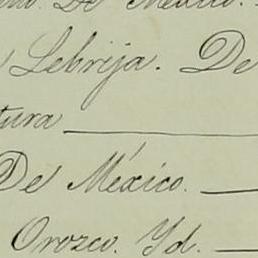 De Mexico.
Lebrija. De
tura
De México.
Orozco. Yd.